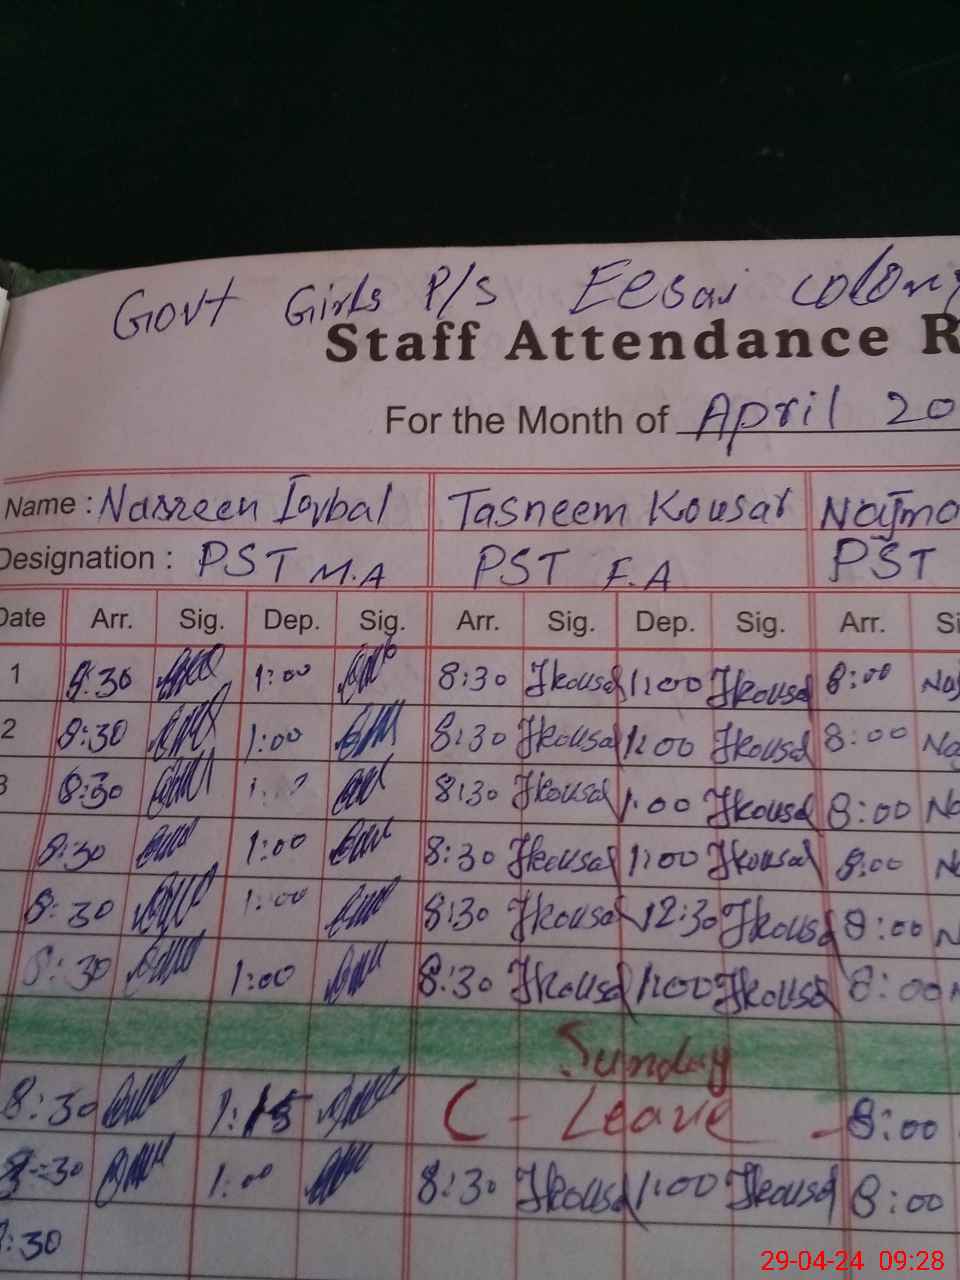 Govt Girls P/S Eesai colony
Staff Attendance R
For the Month of April 20
Name : Nasreen Iqbal Tasneem Kousar Najma
Designation : PST M.A PST F.A PST
Date Arr. Sig. Dep. Sig. Arr. Sig. Dep. Sig. Arr. Si
1 8:30 1:00 8:30 Tkousar 1:00 Tkousar 8:00 Naj
2 8:30 1:00 8:30 Tkousar 1:00 Tkousar 8:00 Na
3 8:30 8:30 Tkousar 1:00 Tkousar 8:00 Na
8:30 1:00 8:30 Tkousar 1:00 Tkousar 8:00 N
8:30 1:00 8:30 Tkousar 12:30 Tkousar 8:00 N
8:30 1:00 8:30 Tkousar 1:00 Tkousar 8:00
Sunday
8:30 1:15 C - Leave - 8:00
8:30 1:00 8:30 Tkousar 1:00 Tkousar 8:00
:30
29-04-24 09:28